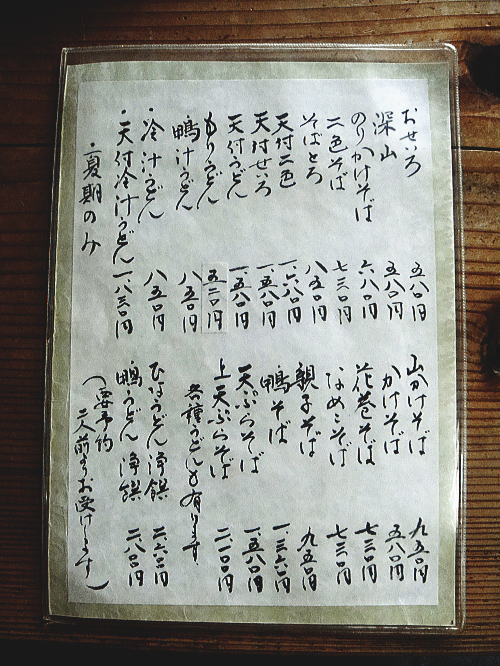 おせろ 五八〇円
深山 五八〇円
のりかけそば 六八〇円
二色そば 七三〇円
そばとろ 八五〇円
天付二色 一、六八〇円
天付せいろ 一、五八〇円
天付うどん 一、五八〇円
もりうどん 五二〇円
鴨汁うどん 八五〇円
・冷汁うどん 八五〇円
・天付冷汁うどん 一、八三〇円
・夏期のみ
山かけそば 九五〇円
かけそば 五八〇円
花巻そば 七三〇円
なめこそば 七三〇円
親子そば 九五〇円
鴨そば 一、三六〇円
天ぷらそば 一、五八〇円
上天ぷらそば 二、一〇〇円
各種うどんも有ります
うどん 二六〇〇円
鴨うどん 二八〇〇円
(要予約
二人前よりお受けします)